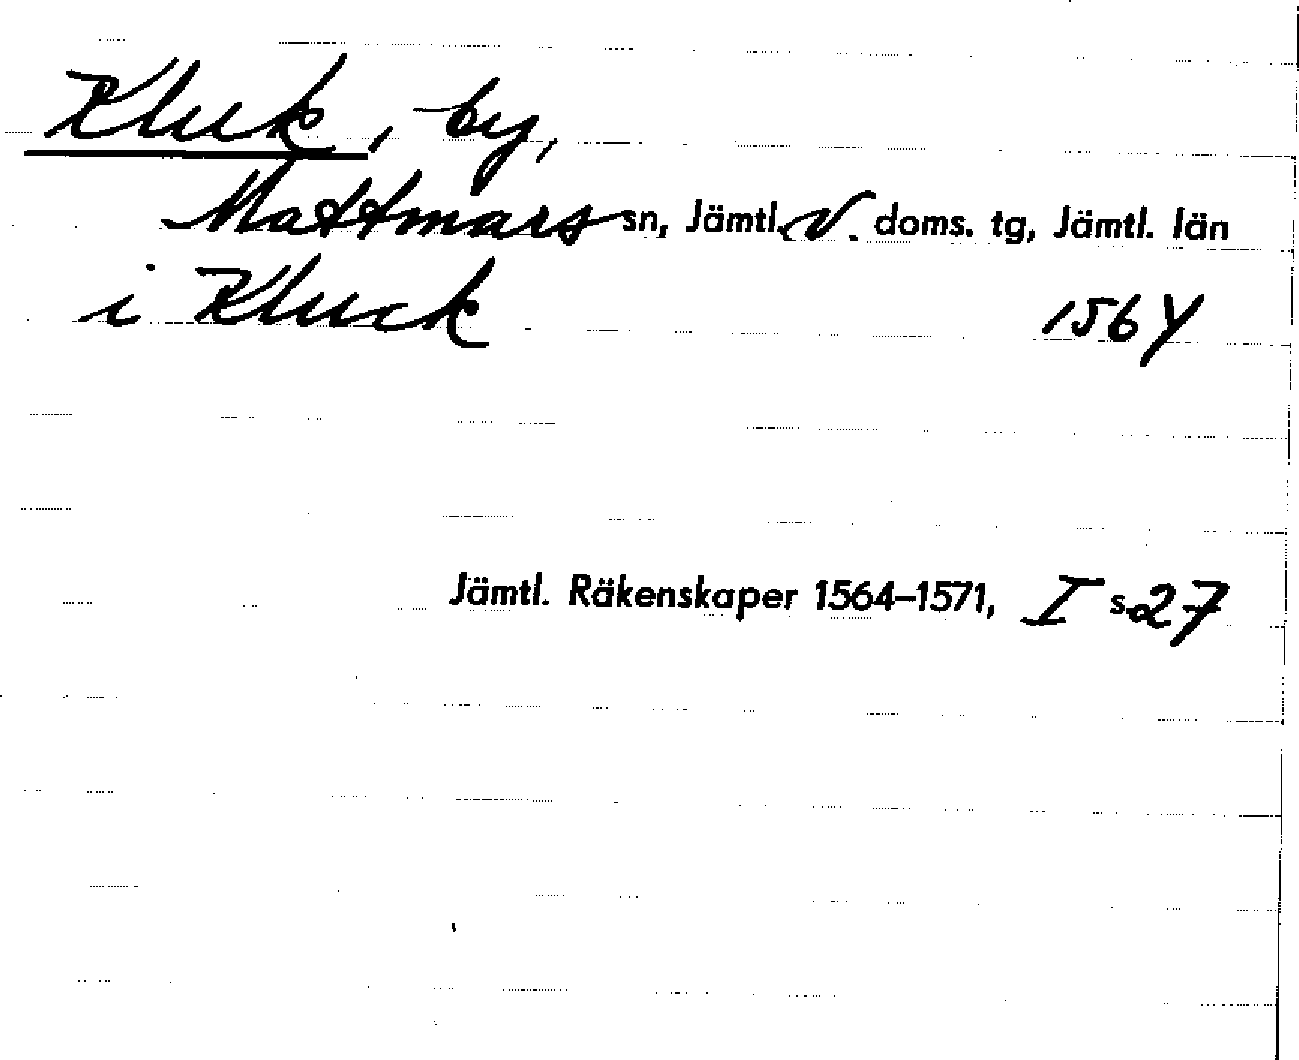 Kluk, by,
Mattmars sn, Jämtl. V. doms. tg, Jämtl. län
i Kluck 1564
Jämtl. Räkenskaper 1564–1571, I s. 27